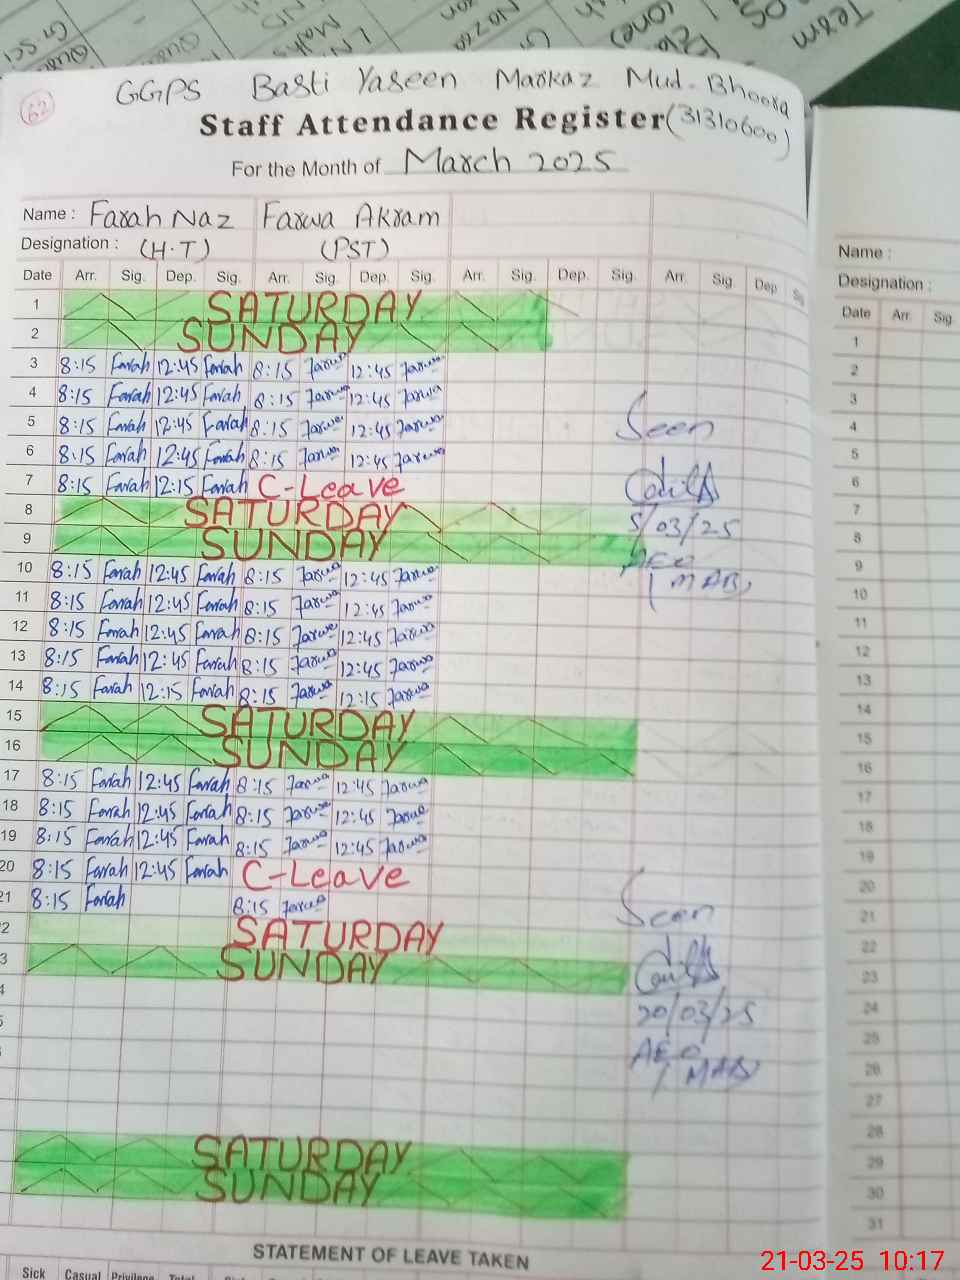 62
GGPS Basti Yaseen Markaz Mud. Bhoora
Staff Attendance Register (31310600)
For the Month of March 2025
Name : Farah Naz Farwa Akram
Designation : (H.T) (PST)
Date Arr. Sig. Dep. Sig. Arr. Sig. Dep. Sig. Arr. Sig. Dep. Sig. Arr. Sig. Dep. Sig
1 SATURDAY
2 SUNDAY
3 8:15 Farah 12:45 Farah 8:15 Farwa 12:45 Farwa
4 8:15 Farah 12:45 Farah 8:15 Farwa 12:45 Farwa
5 8:15 Farah 12:45 Farah 8:15 Farwa 12:45 Farwa
6 8:15 Farah 12:45 Farah 8:15 Farwa 12:45 Farwa
7 8:15 Farah 12:15 Farah C-Leave
8 SATURDAY
9 SUNDAY
10 8:15 Farah 12:45 Farah 8:15 Farwa 12:45 Farwa
11 8:15 Farah 12:45 Farah 8:15 Farwa 12:45 Farwa
12 8:15 Farah 12:45 Farah 8:15 Farwa 12:45 Farwa
13 8:15 Farah 12:45 Farah 8:15 Farwa 12:45 Farwa
14 8:15 Farah 12:15 Farah 8:15 Farwa 12:15 Farwa
15 SATURDAY
16 SUNDAY
17 8:15 Farah 12:45 Farah 8:15 Farwa 12:45 Farwa
18 8:15 Farah 12:45 Farah 8:15 Farwa 12:45 Farwa
19 8:15 Farah 12:45 Farah 8:15 Farwa 12:45 Farwa
20 8:15 Farah 12:45 Farah C-Leave
21 8:15 Farah 8:15 Farwa
2 SATURDAY
3 SUNDAY
4
SATURDAY
SUNDAY
STATEMENT OF LEAVE TAKEN
Sick Casual Privilege Total
Seen
5/03/25
AEO
MAB
Seen
20/03/25
AEO
MAB
Name :
Designation :
Date Arr. Sig.
1
2
3
4
5
6
7
8
9
10
11
12
13
14
15
16
17
18
19
20
21
22
23
24
25
26
27
28
29
30
31
21-03-25 10:17